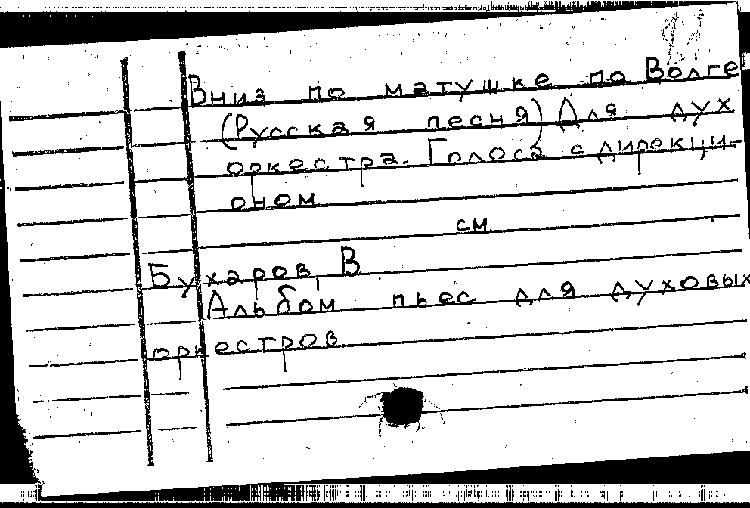 Вниз по матушке по Волге
(Русская песня) Для дух
оркестра. Голоса с дирекци-
оном
см
Бухаров, В
Альбом пьес для духовых
оркестров.